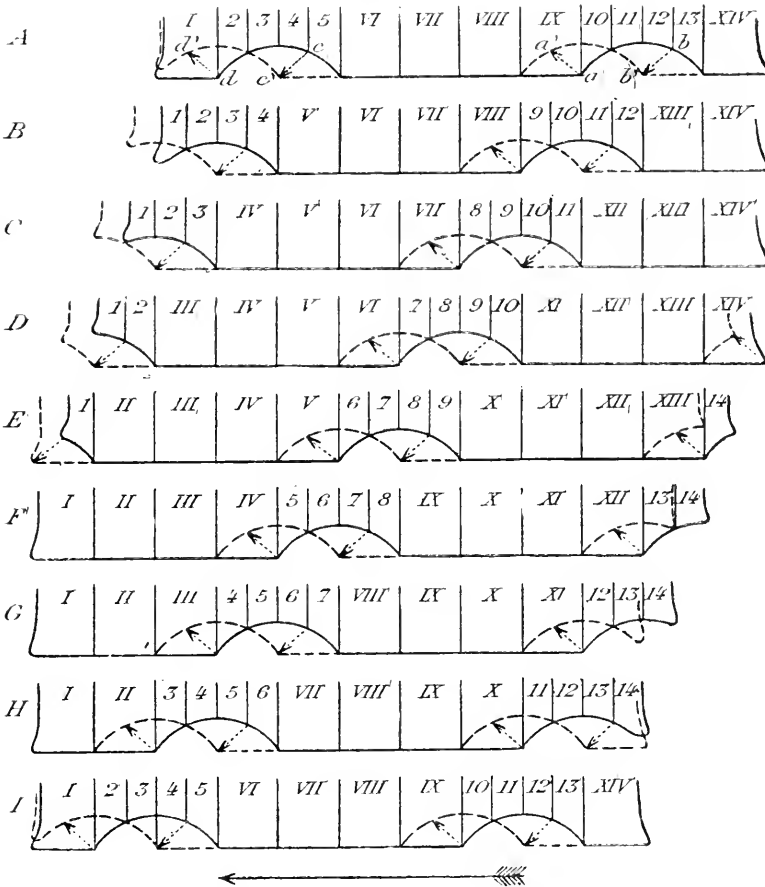 A I 2 3 4 5 VI VII VIII IX 10 11 12 13 XIV
d' c a' b
d e a b
B 1 2 3 4 V VI VII VIII 9 10 11 12 XIII XIV
C 1 2 3 IV V VI VII 8 9 10 11 XII XIII XIV
D 1 2 III IV V VI 7 8 9 10 XI XII XIII XIV
E 1 II III IV V 6 7 8 9 X XI XII XIII 14
F I II III IV 5 6 7 8 IX X XI XII 13 14
G I II III 4 5 6 7 VIII IX X XI 12 13 14
H I II 3 4 5 6 VII VIII IX X 11 12 13 14
I I 2 3 4 5 VI VII VIII IX 10 11 12 13 XIV